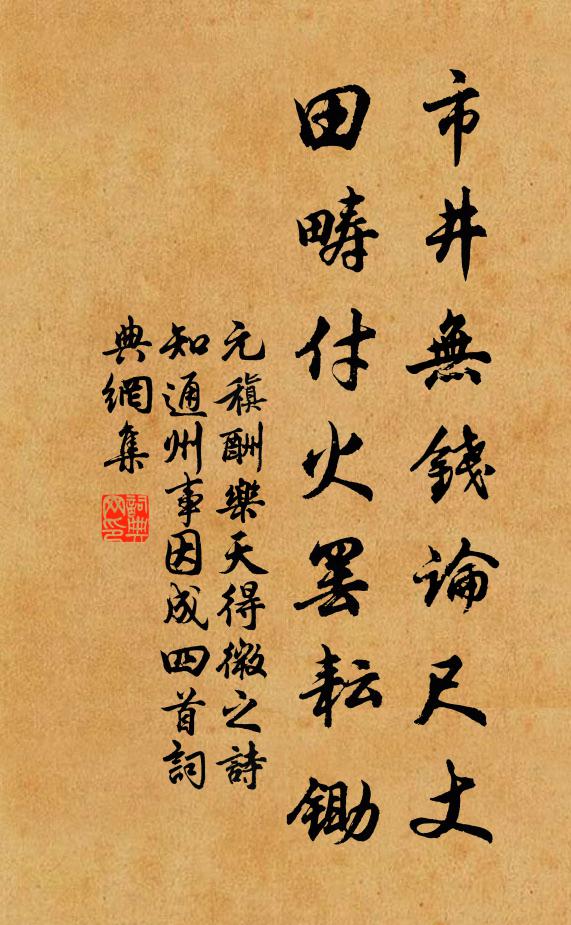 市井無錢論尺丈
田疇付火罢耘锄
元稹酬樂天得微之詩
知通州事因成四首詞
典網集
詞典网印